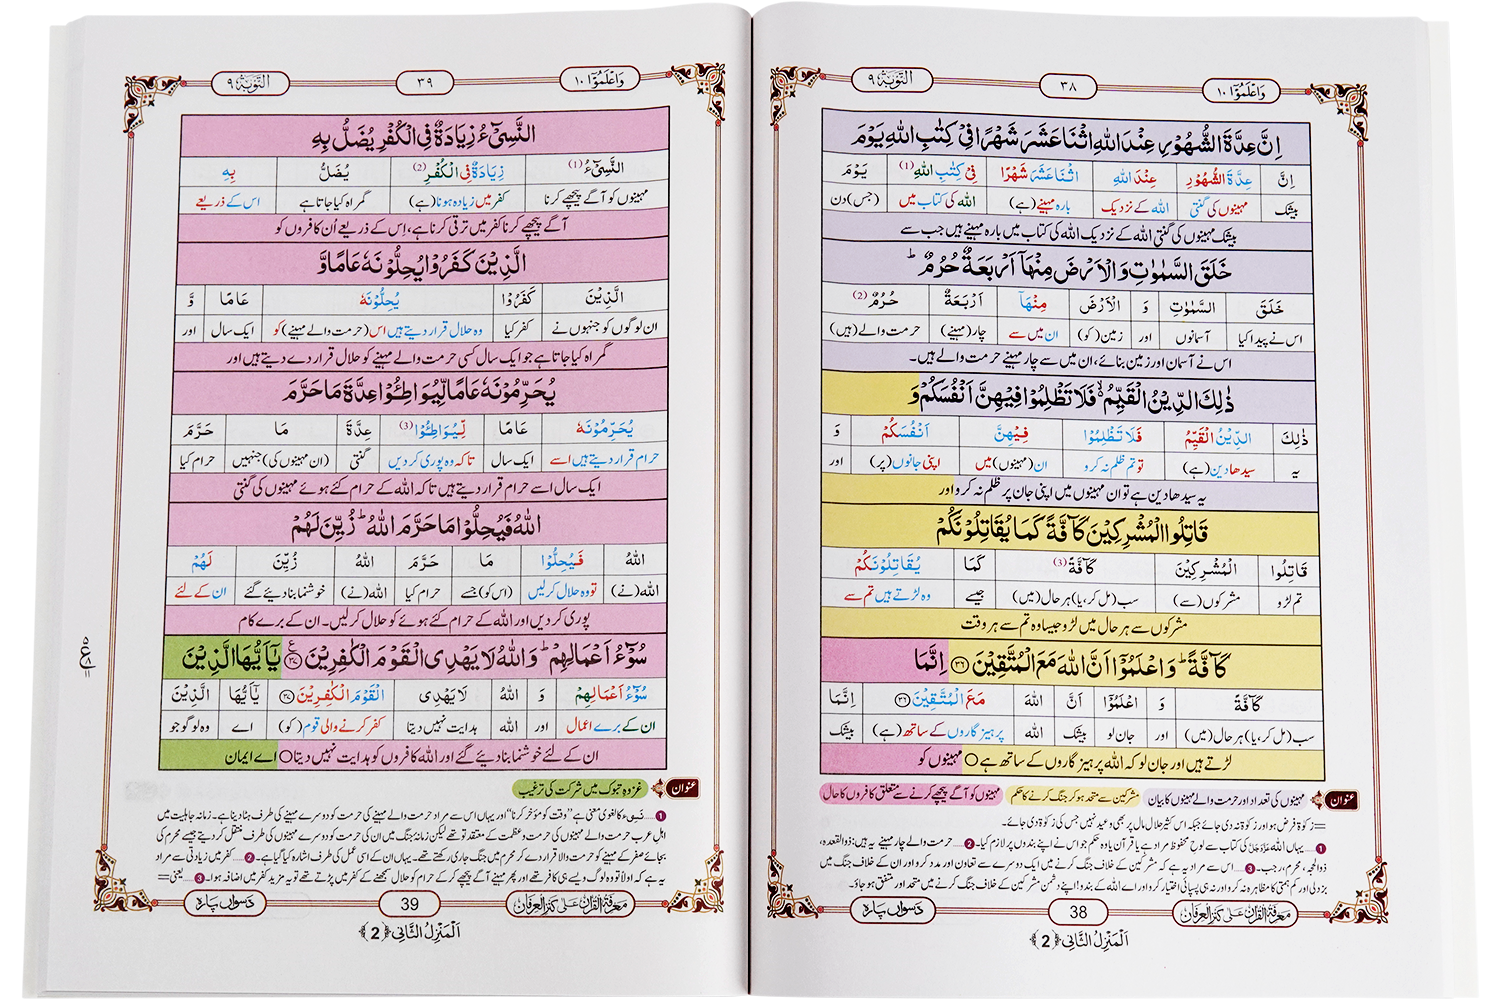 وَاعْلَمُوْٓا ١٠
٣٨
التَّوْبَة ٩
اِنَّ عِدَّةَ الشُّهُوْرِ عِنْدَ اللّٰهِ اثْنَا عَشَرَ شَهْرًا فِیْ كِتٰبِ اللّٰهِ یَوْمَ
اِنَّ عِدَّةَ الشُّهُوْرِ عِنْدَ اللّٰهِ اثْنَا عَشَرَ شَهْرًا فِیْ كِتٰبِ اللّٰهِ (1) یَوْمَ
بیشک مہینوں کی گنتی اللہ کے نزدیک بارہ مہینے (ہے) اللہ کی کتاب میں (جس) دن
بیشک مہینوں کی گنتی اللہ کے نزدیک اللہ کی کتاب میں بارہ مہینے ہیں جب سے
خَلَقَ السَّمٰوٰتِ وَ الْاَرْضَ مِنْهَاۤ اَرْبَعَةٌ حُرُمٌؕ
خَلَقَ السَّمٰوٰتِ وَ الْاَرْضَ مِنْهَاۤ اَرْبَعَةٌ حُرُمٌ (2)
اس نے پیدا کیا آسمانوں اور زمین (کو) ان میں سے چار (مہینے) حرمت والے (ہیں)
اس نے آسمان اور زمین بنائے، ان میں سے چار مہینے حرمت والے ہیں۔
ذٰلِكَ الدِّیْنُ الْقَیِّمُ ۙ فَلَا تَظْلِمُوْا فِیْهِنَّ اَنْفُسَكُمْ وَ
ذٰلِكَ الدِّیْنُ الْقَیِّمُ فَلَا تَظْلِمُوْا فِیْهِنَّ اَنْفُسَكُمْ وَ
یہ سیدھا دین (ہے) تو تم ظلم نہ کرو ان (مہینوں) میں اپنی جانوں (پر) اور
یہ سیدھا دین ہے تو ان مہینوں میں اپنی جان پر ظلم نہ کرو اور
قَاتِلُوا الْمُشْرِكِیْنَ كَآفَّةً كَمَا یُقَاتِلُوْنَكُمْ
قَاتِلُوا الْمُشْرِكِیْنَ كَآفَّةً (3) كَمَا یُقَاتِلُوْنَكُمْ
تم لڑو مشرکوں (سے) سب (مل کر، یا) ہر حال (میں) جیسے وہ لڑتے ہیں تم سے
مشرکوں سے ہر حال میں لڑو جیسا وہ تم سے ہر وقت
كَآفَّةًؕ وَ اعْلَمُوْۤا اَنَّ اللّٰهَ مَعَ الْمُتَّقِیْنَ ﴿٣٦﴾ اِنَّمَا
كَآفَّةً وَ اعْلَمُوْۤا اَنَّ اللّٰهَ مَعَ الْمُتَّقِیْنَ ﴿٣٦﴾ اِنَّمَا
سب (مل کر، یا) ہر حال (میں) اور جان لو بیشک اللہ پرہیزگاروں کے ساتھ (ہے) بیشک
لڑتے ہیں اور جان لو کہ اللہ پرہیزگاروں کے ساتھ ہے ○ مہینوں کو
عنوان مہینوں کی تعداد اور حرمت والے مہینوں کا بیان مشرکین سے متحد ہو کر جنگ کرنے کا حکم مہینوں کو آگے پیچھے کرنے سے متعلق کافروں کا حال
= زکوٰۃ فرض ہو اور زکوٰۃ نہ دی جائے جبکہ اس کثیر حلال مال پر بھی وعید نہیں جس کی زکوٰۃ دی جائے۔
1 .....یہاں اللہ کی کتاب سے لوحِ محفوظ مراد ہے یا قرآن یا وہ حکم جو اس نے اپنے بندوں پر لازم کیا۔ 2 ..... حرمت والے چار مہینے یہ ہیں: ذوالقعدہ،
ذوالحجہ، محرم، رجب۔ 3 ..... اس سے مراد یہ ہے کہ مشرکین کے خلاف جنگ کرنے میں ایک دوسرے سے تعاون اور مدد کرو اور ان کے خلاف جنگ میں
بزدلی اور کم ہمتی کا مظاہرہ نہ کرو اور نہ ہی پسپائی اختیار کرو اور اے اللہ کے بندو! اپنے دشمن مشرکین کے خلاف جنگ کرنے میں متحد اور متفق ہو جاؤ۔
معرفۃ القرآن علیٰ کنز العرفان
38
دسواں پارہ
اَلْمَنْزِلُ الثَّانِی ﴿2﴾
وَاعْلَمُوْٓا ١٠
٣٩
التَّوْبَة ٩
النَّسِیْٓءُ زِیَادَةٌ فِی الْكُفْرِ یُضَلُّ بِهِ
النَّسِیْٓءُ (1) زِیَادَةٌ فِی الْكُفْرِ (2) یُضَلُّ بِهِ
مہینوں کو آگے پیچھے کرنا کفر میں زیادہ ہونا (ہے) گمراہ کیا جاتا ہے اس کے ذریعے
آگے پیچھے کرنا کفر میں ترقی کرنا ہے، اِس کے ذریعے اُن کافروں کو
الَّذِیْنَ كَفَرُوْا یُحِلُّوْنَهٗ عَامًا وَّ
الَّذِیْنَ كَفَرُوْا یُحِلُّوْنَهٗ عَامًا وَّ
ان لوگوں کو جنہوں نے کفر کیا وہ حلال قرار دیتے ہیں اس (حرمت والے مہینے) کو ایک سال اور
گمراہ کیا جاتا ہے جو ایک سال کسی حرمت والے مہینے کو حلال قرار دے دیتے ہیں اور
یُحَرِّمُوْنَهٗ عَامًا لِّیُوَاطِـُٔوْا عِدَّةَ مَا حَرَّمَ
یُحَرِّمُوْنَهٗ عَامًا لِّیُوَاطِـُٔوْا (3) عِدَّةَ مَا حَرَّمَ
حرام قرار دیتے ہیں اسے ایک سال تاکہ وہ پوری کر دیں گنتی (ان مہینوں کی) جنہیں حرام کیا
ایک سال اسے حرام قرار دیتے ہیں تاکہ اللہ کے حرام کئے ہوئے مہینوں کی گنتی
اللّٰهُ فَیُحِلُّوْا مَا حَرَّمَ اللّٰهُؕ زُیِّنَ لَهُمْ
اللّٰهُ فَیُحِلُّوْا مَا حَرَّمَ اللّٰهُ زُیِّنَ لَهُمْ
اللہ (نے) تو وہ حلال کر لیں (اس کو) جسے حرام کیا اللہ (نے) خوشنما بنا دیئے گئے ان کے لئے
پوری کر دیں اور اللہ کے حرام کئے ہوئے کو حلال کر لیں۔ ان کے برے کام
سُوْٓءُ اَعْمَالِهِمْؕ وَ اللّٰهُ لَا یَهْدِی الْقَوْمَ الْكٰفِرِیْنَ ﴿٣٧﴾ یٰۤاَیُّهَا الَّذِیْنَ
سُوْٓءُ اَعْمَالِهِمْ وَ اللّٰهُ لَا یَهْدِی الْقَوْمَ الْكٰفِرِیْنَ ﴿٣٧﴾ یٰۤاَیُّهَا الَّذِیْنَ
ان کے برے اعمال اور اللہ ہدایت نہیں دیتا کفر کرنے والی قوم (کو) اے وہ لوگو جو
ان کے لئے خوشنما بنا دیئے گئے اور اللہ کافروں کو ہدایت نہیں دیتا ○ اے ایمان
عنوان غزوہ تبوک میں شرکت کی ترغیب
1 ..... نسیء کا لغوی معنی ہے "وقت کو مؤخر کرنا" اور یہاں اس سے مراد حرمت والے مہینے کی حرمت کو دوسرے مہینے کی طرف ہٹا دینا ہے۔ زمانہ جاہلیت میں
اہلِ عرب حرمت والے مہینوں کی حرمت و عظمت کے معتقد تھے لیکن زمانہ جنگ میں ان کی حرمت کو دوسرے مہینوں کی طرف منتقل کر دیتے جیسے محرم کی
بجائے صفر کے مہینے کو حرمت والا قرار دے کر محرم میں جنگ جاری رکھتے تھے۔ یہاں ان کے اسی عمل کی طرف اشارہ کیا گیا ہے۔ 2 ..... کفر میں زیادتی سے مراد
یہ ہے کہ اولاً تو وہ لوگ ویسے ہی کافر تھے اور پھر مہینے آگے پیچھے کر کے حرام کو حلال سمجھنے کے کفر میں پڑتے تھے تو یہ مزید کفر میں اضافہ ہوا۔ 3 ..... یعنی =
معرفۃ القرآن علیٰ کنز العرفان
39
دسواں پارہ
اَلْمَنْزِلُ الثَّانِی ﴿2﴾